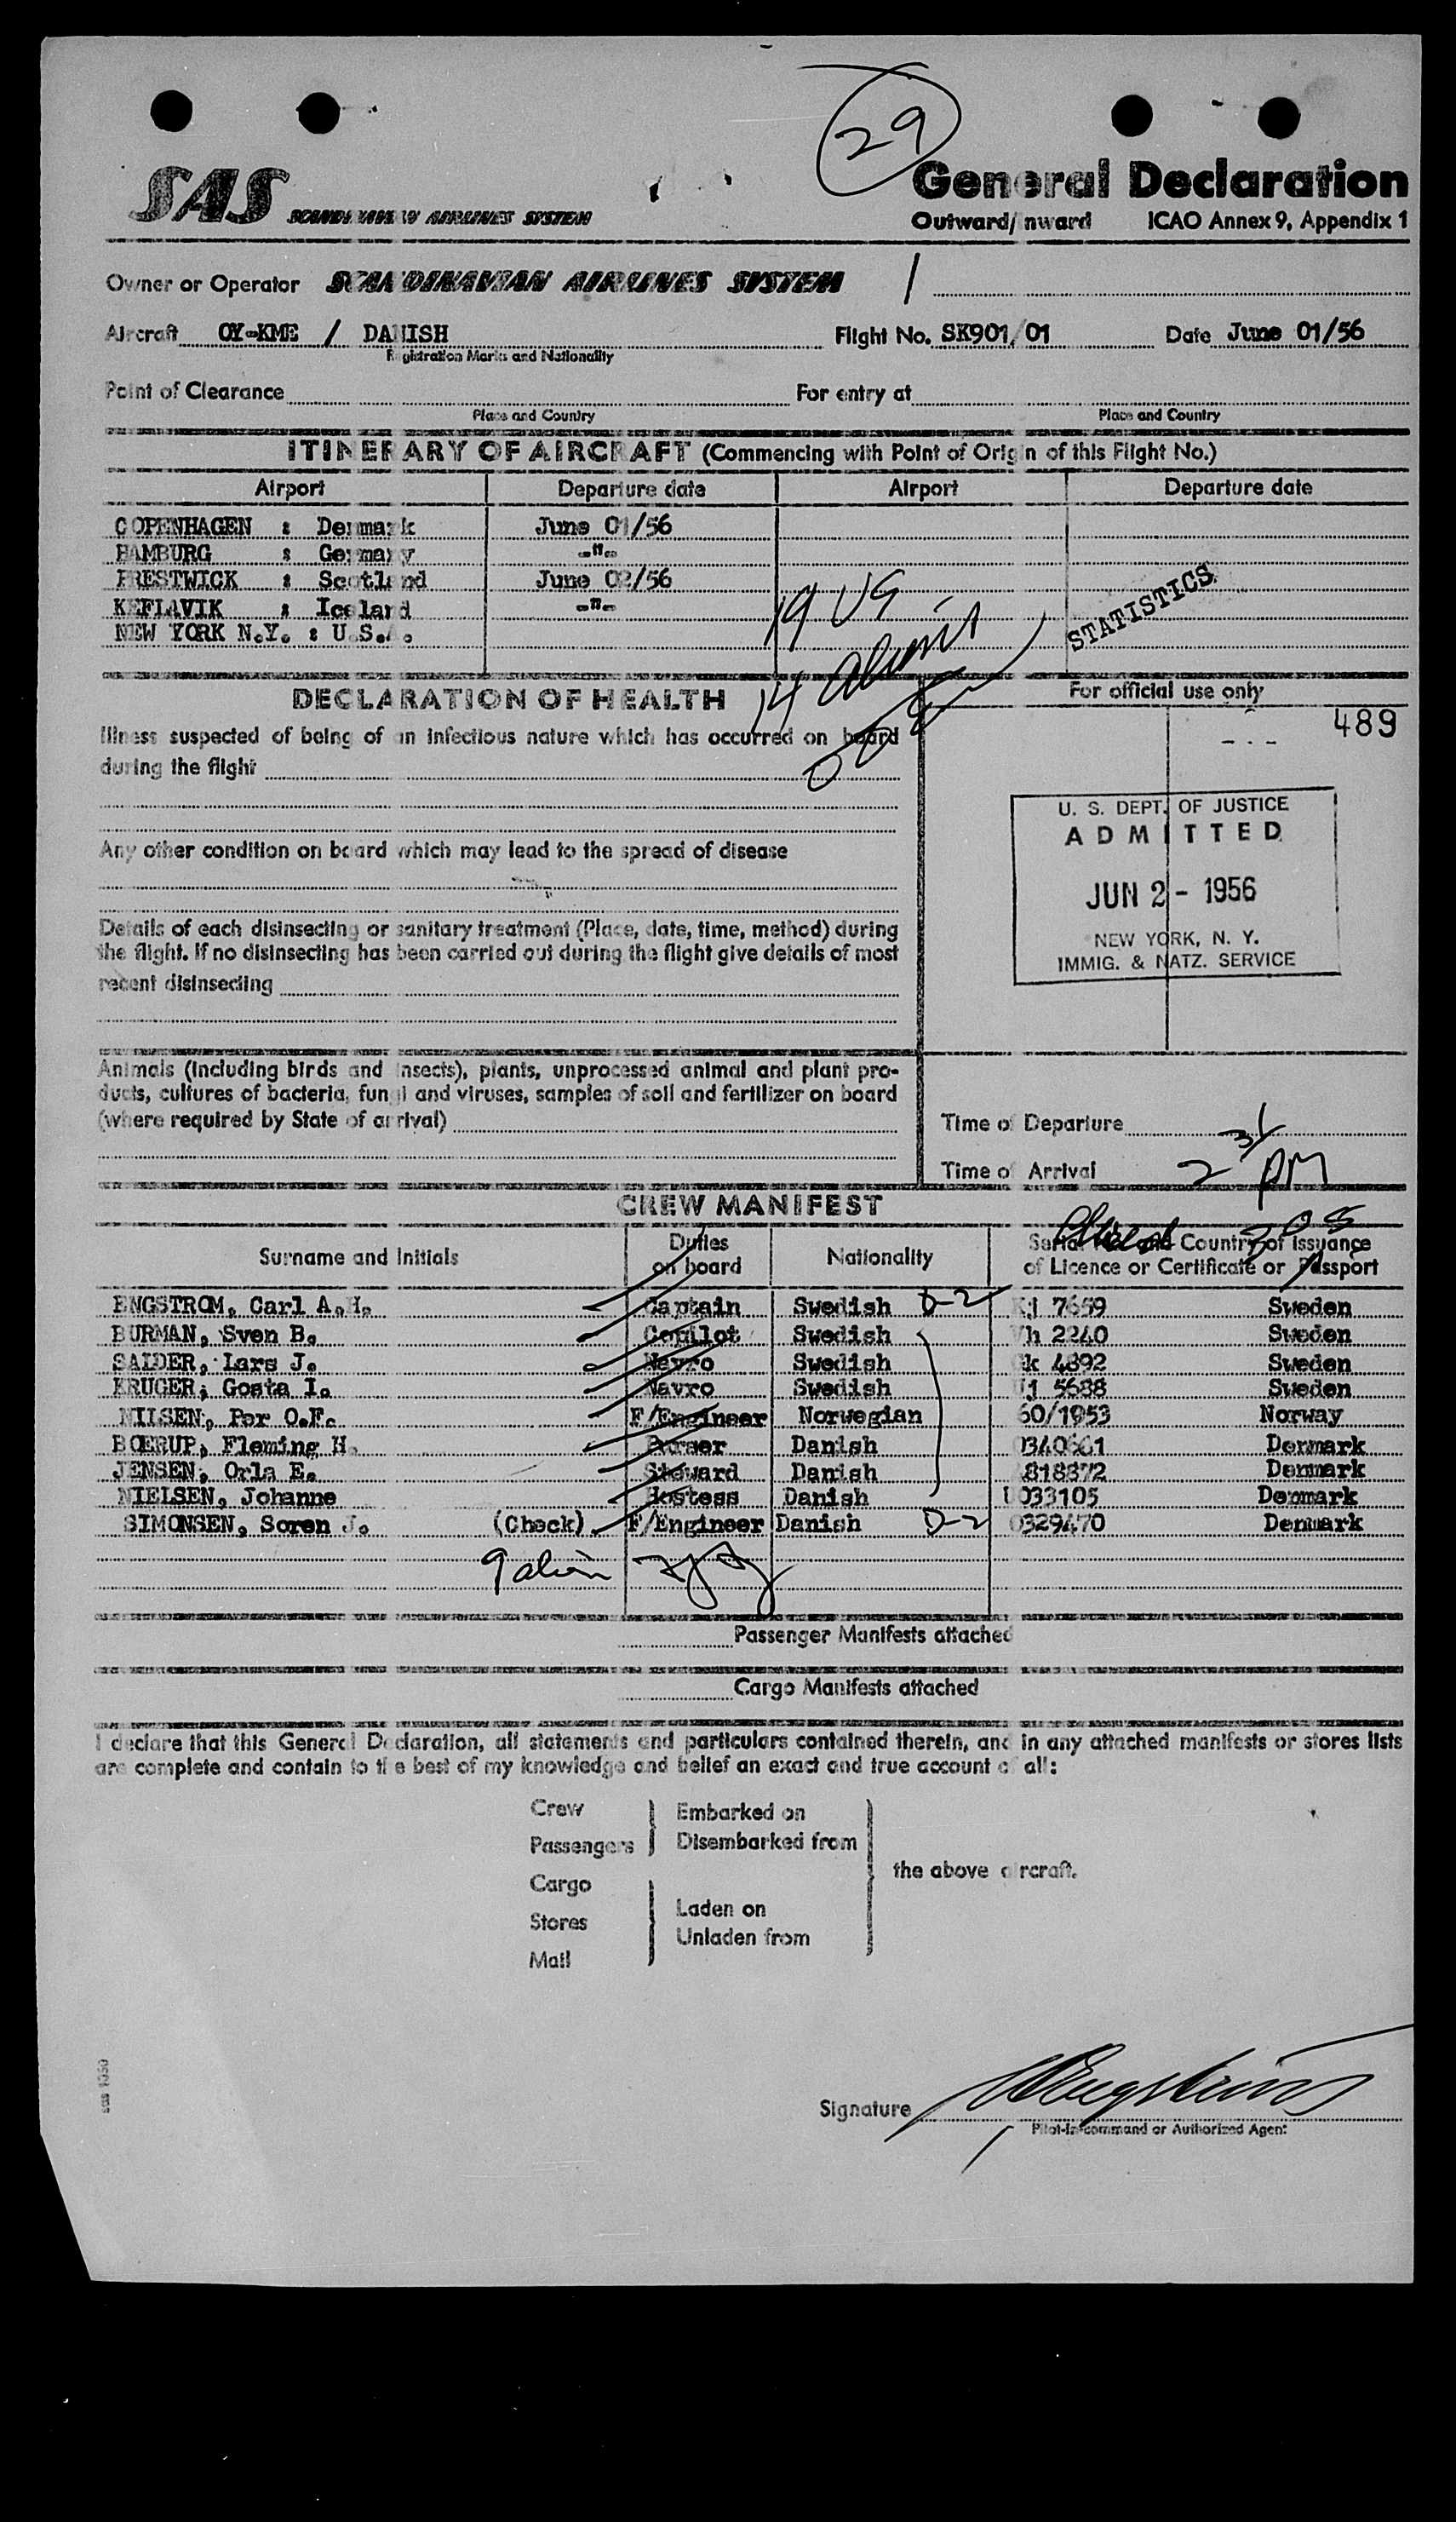 29
SAS SCANDINAVIAN AIRLINES SYSTEM
General Declaration
Outward/Inward ICAO Annex 9, Appendix 1
Owner or Operator SCANDINAVIAN AIRLINES SYSTEM
Aircraft OY-KME / DANISH Flight No. SK901/01 Date June 01/56
Registration Marks and Nationality
Point of Clearance For entry at
Place and Country Place and Country
ITINERARY OF AIRCRAFT (Commencing with Point of Origin of this Flight No.)
Airport Departure date Airport Departure date
COPENHAGEN : Denmark June 01/56
HAMBURG : Germany -"-
PRESTWICK : Scotland June 02/56
KEFLAVIK : Iceland -"-
NEW YORK N.Y. : U.S.A.
19 US
14 aliens
STATISTICS
DECLARATION OF HEALTH
For official use only
489
Illness suspected of being of an infectious nature which has occurred on board
during the flight
Any other condition on board which may lead to the spread of disease
U. S. DEPT. OF JUSTICE
ADMITTED
JUN 2 - 1956
NEW YORK, N. Y.
IMMIG. & NATZ. SERVICE
Details of each disinsecting or sanitary treatment (Place, date, time, method) during
the flight. If no disinsecting has been carried out during the flight give details of most
recent disinsecting
Animals (including birds and insects), plants, unprocessed animal and plant pro-
ducts, cultures of bacteria, fungi and viruses, samples of soil and fertilizer on board
(where required by State of arrival)
Time of Departure
Time of Arrival 2 31 PM
CREW MANIFEST
Surname and Initials Duties on board Nationality Serial No. and Country of Issuance
of Licence or Certificate or Passport
ENGSTROM, Carl A.H. Captain Swedish D-2 7659 Sweden
BURMAN, Sven B. Copilot Swedish Vh 2240 Sweden
SALDER, Lars J. Navro Swedish 4892 Sweden
KRUGER, Gosta I. Navro Swedish 5688 Sweden
NILSEN, Per O.F. F/Engineer Norwegian 60/1953 Norway
BOERUP, Fleming H. Purser Danish 0340661 Denmark
JENSEN, Orla E. Steward Danish 818872 Denmark
NIELSEN, Johanne Hostess Danish U033105 Denmark
SIMONSEN, Soren J. (Check) F/Engineer Danish D-2 0329470 Denmark
9 alien
Passenger Manifests attached
Cargo Manifests attached
I declare that this General Declaration, all statements and particulars contained therein, and in any attached manifests or stores lists
are complete and contain to the best of my knowledge and belief an exact and true account of all:
Crew
Passengers
Embarked on
Disembarked from
Cargo
Stores
Mail
Laden on
Unladen from
the above aircraft.
Signature
Pilot-in-command or Authorized Agent